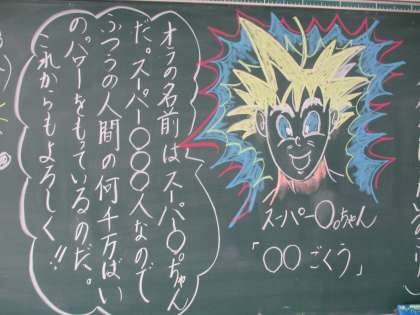 オラの名前はスーパー〇。ちゃん
だ。スーパー〇〇〇人なので
ふつうの人間の何千万ばい
の。パワーをもっているのだ。
これからもよろしく!!
スーパー〇。ちゃん
「〇〇ごくう」